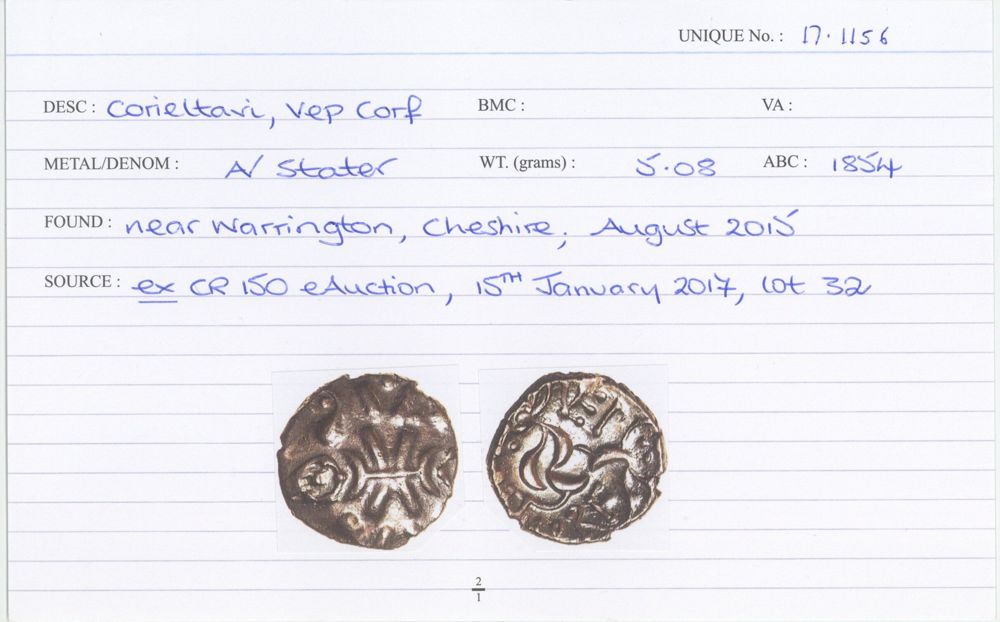 UNIQUE No. : 17.1156
DESC : Corieltavi, Vep Corf BMC : VA :
METAL/DENOM : A/ Stater WT. (grams) : 5.08 ABC : 1854
FOUND : near Warrington, Cheshire, August 2015
SOURCE : ex CR 150 eAuction, 15TH January 2017, lot 32
VEP
2
1